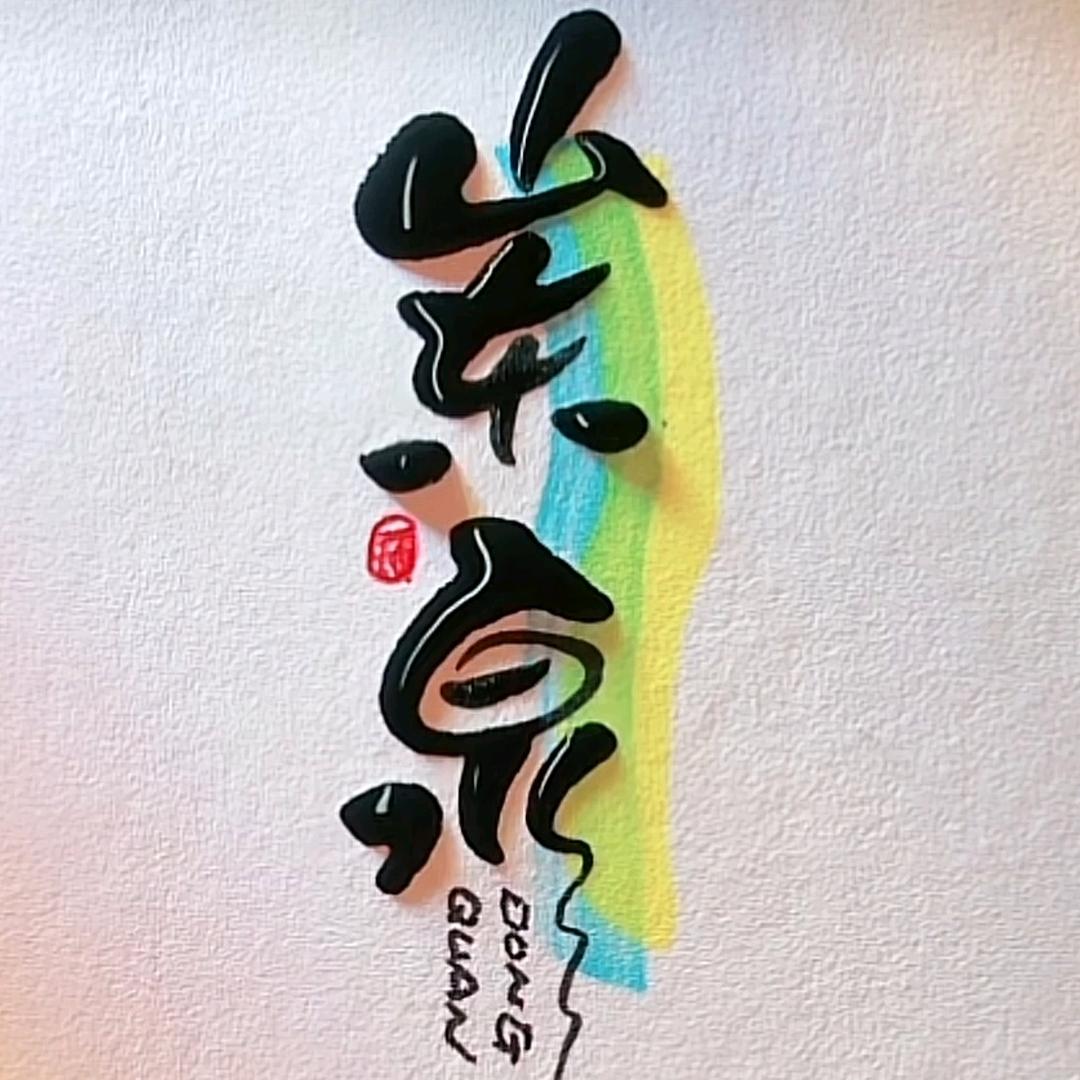 岽泉
DONG
QUAN